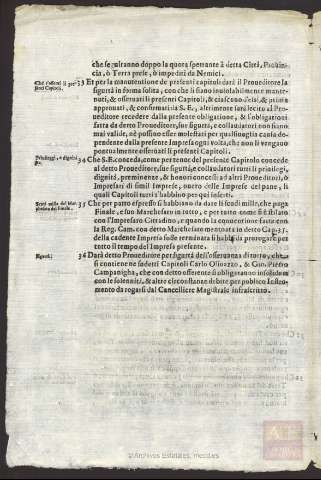 che seguiranno doppo la quota spettante à detta Città, Prouin-
cia, ò Terra prese, ò impedita da Nemici.
Che s'osserui li pre-
senti Capitoli.
33 Et per la manutentione de presenti capitoli darà il Proueditore la
sigurtà in forma solita, con che li siano inuiolabilmente mante-
nuti, & osseruati li presenti Capitoli, & ciascuno d'essi, & prima
approuati, & confirmati da S.E., altrimente sarà lecito al detto
Proueditore recedere dalla presente obligatione, & l'obligationi
fatte da detto Proueditore, sue sigurtà, e collaudatori non siano
mai valide, nè possino esser molestati per qualsiuoglia causa do-
pendente dalla presente Impresa ogni volta, che non li vengano
pontualmente osseruati li presenti Capitoli.
Priuileggi, e dignità
34 Che S.E. conceda, come per tenor del presente Capitolo concede
al detto Proueditore, sue sigurtà, e collaudatori tutti li priuilegij,
dignità, preminenze, & honori concessi ad altri Proueditori, ò
Impresari di simil Imprese, ouero delle Imprese del pane, li
quali Capitoli tutti s'habbino per qui inserti.
35 Che per patto espresso si habbiano da dare li scudi mille, che paga
Finale, e suo Marchesato in tutto, e per tanto come si è stilato
con l'Impresaro Cittadino, e quando la conuentione fatta con
la Reg. Cam. con detto Marchesato mentouata in detto Cap. 35.
della cadente Impresa fosse terminata si habbia prorogare per
tutto il tempo del Impresa presente.
Sigurtà.
36 Darà detto Proueditore per sigurtà dell'osseruanza di tutto, che
si contiene ne sudetti Capitoli Carlo Oliuazzo, & Gio. Pietro
Campanigha, che con detto offerente si obligaranno insolidum
con le solennità, & altre circonstanze debite per publico Instro-
mento da rogarsi dal Cancelliere Magistrale infrascritto.
Archivos Estatales, mecd.es